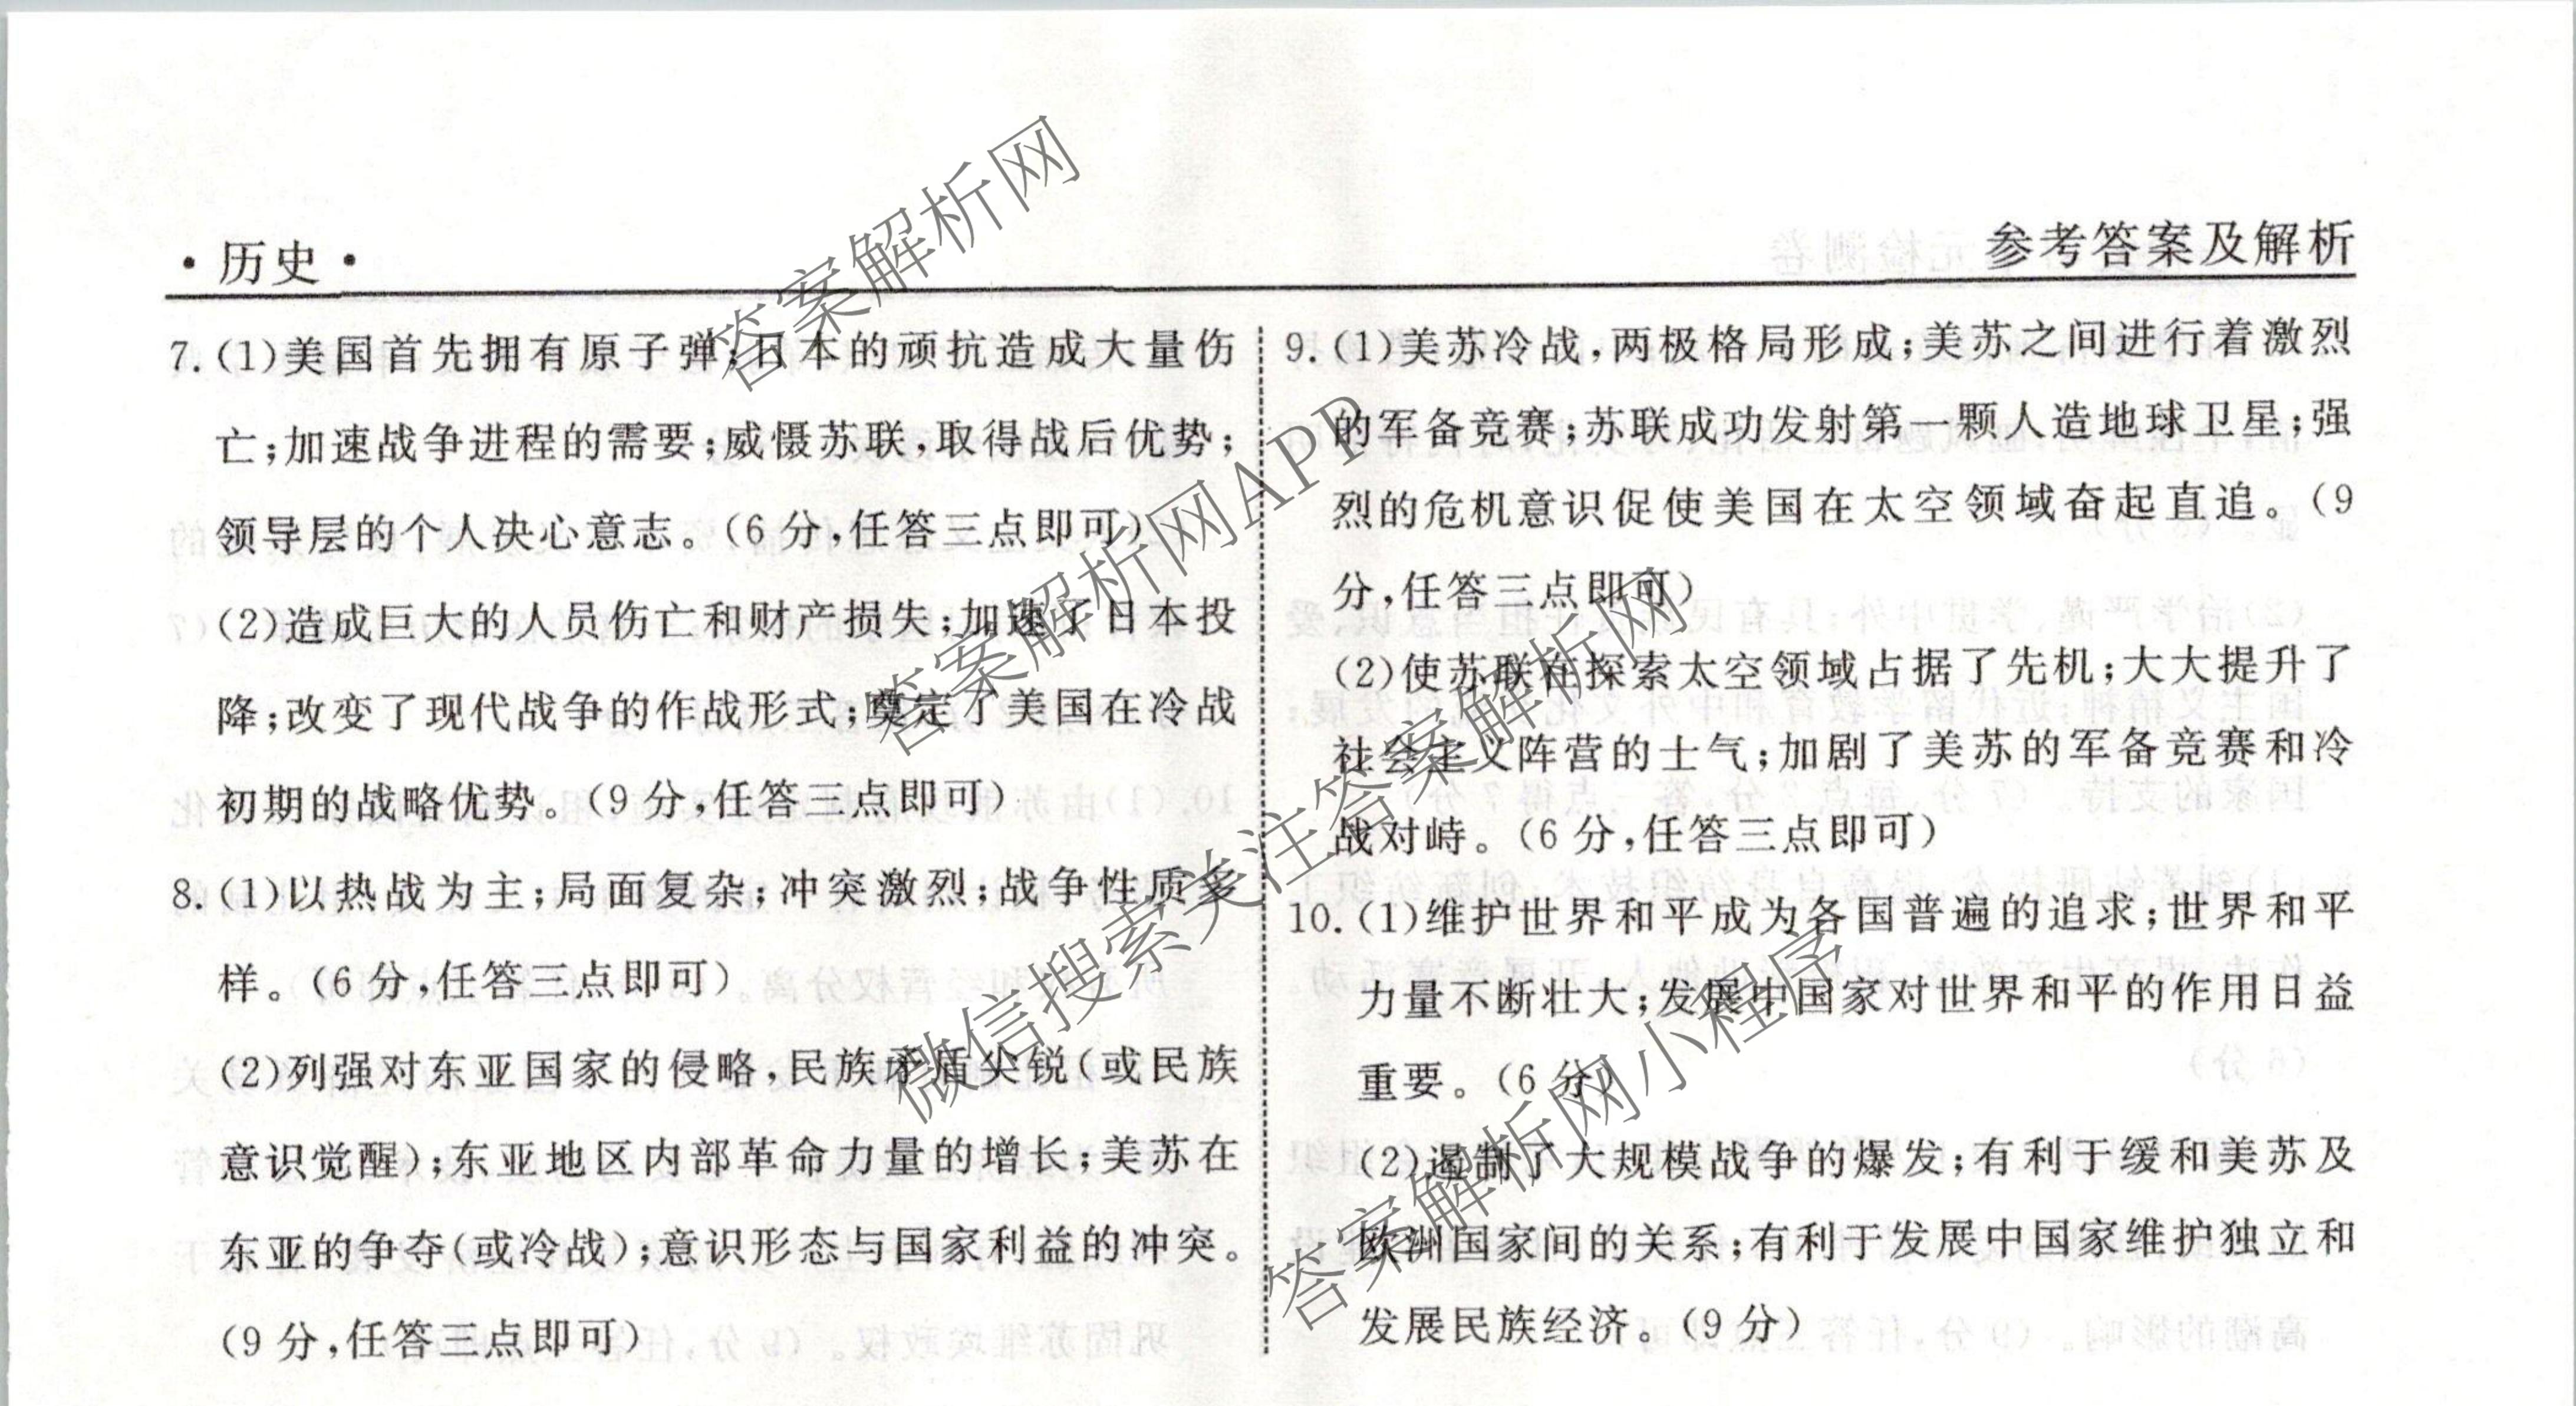 ·历史·
参考答案及解析
7.(1)美国首先拥有原子弹;日本的顽抗造成大量伤
亡;加速战争进程的需要;威慑苏联,取得战后优势;
领导层的个人决心意志。(6分,任答三点即可)
(2)造成巨大的人员伤亡和财产损失;加速了日本投
降;改变了现代战争的作战形式;奠定了美国在冷战
初期的战略优势。(9分,任答三点即可)
8.(1)以热战为主;局面复杂;冲突激烈;战争性质多
样。(6分,任答三点即可)
(2)列强对东亚国家的侵略,民族矛盾尖锐(或民族
意识觉醒);东亚地区内部革命力量的增长;美苏在
东亚的争夺(或冷战);意识形态与国家利益的冲突。
(9分,任答三点即可)
9.(1)美苏冷战,两极格局形成;美苏之间进行着激烈
的军备竞赛;苏联成功发射第一颗人造地球卫星;强
烈的危机意识促使美国在太空领域奋起直追。(9
分,任答三点即可)
(2)使苏联在探索太空领域占据了先机;大大提升了
社会主义阵营的士气;加剧了美苏的军备竞赛和冷
战对峙。(6分,任答三点即可)
10.(1)维护世界和平成为各国普遍的追求;世界和平
力量不断壮大;发展中国家对世界和平的作用日益
重要。(6分)
(2)遏制了大规模战争的爆发;有利于缓和美苏及
欧洲国家间的关系;有利于发展中国家维护独立和
发展民族经济。(9分)
答案解析网
答案解析网APP
微信搜索关注答案解析网
答案解析网小程序